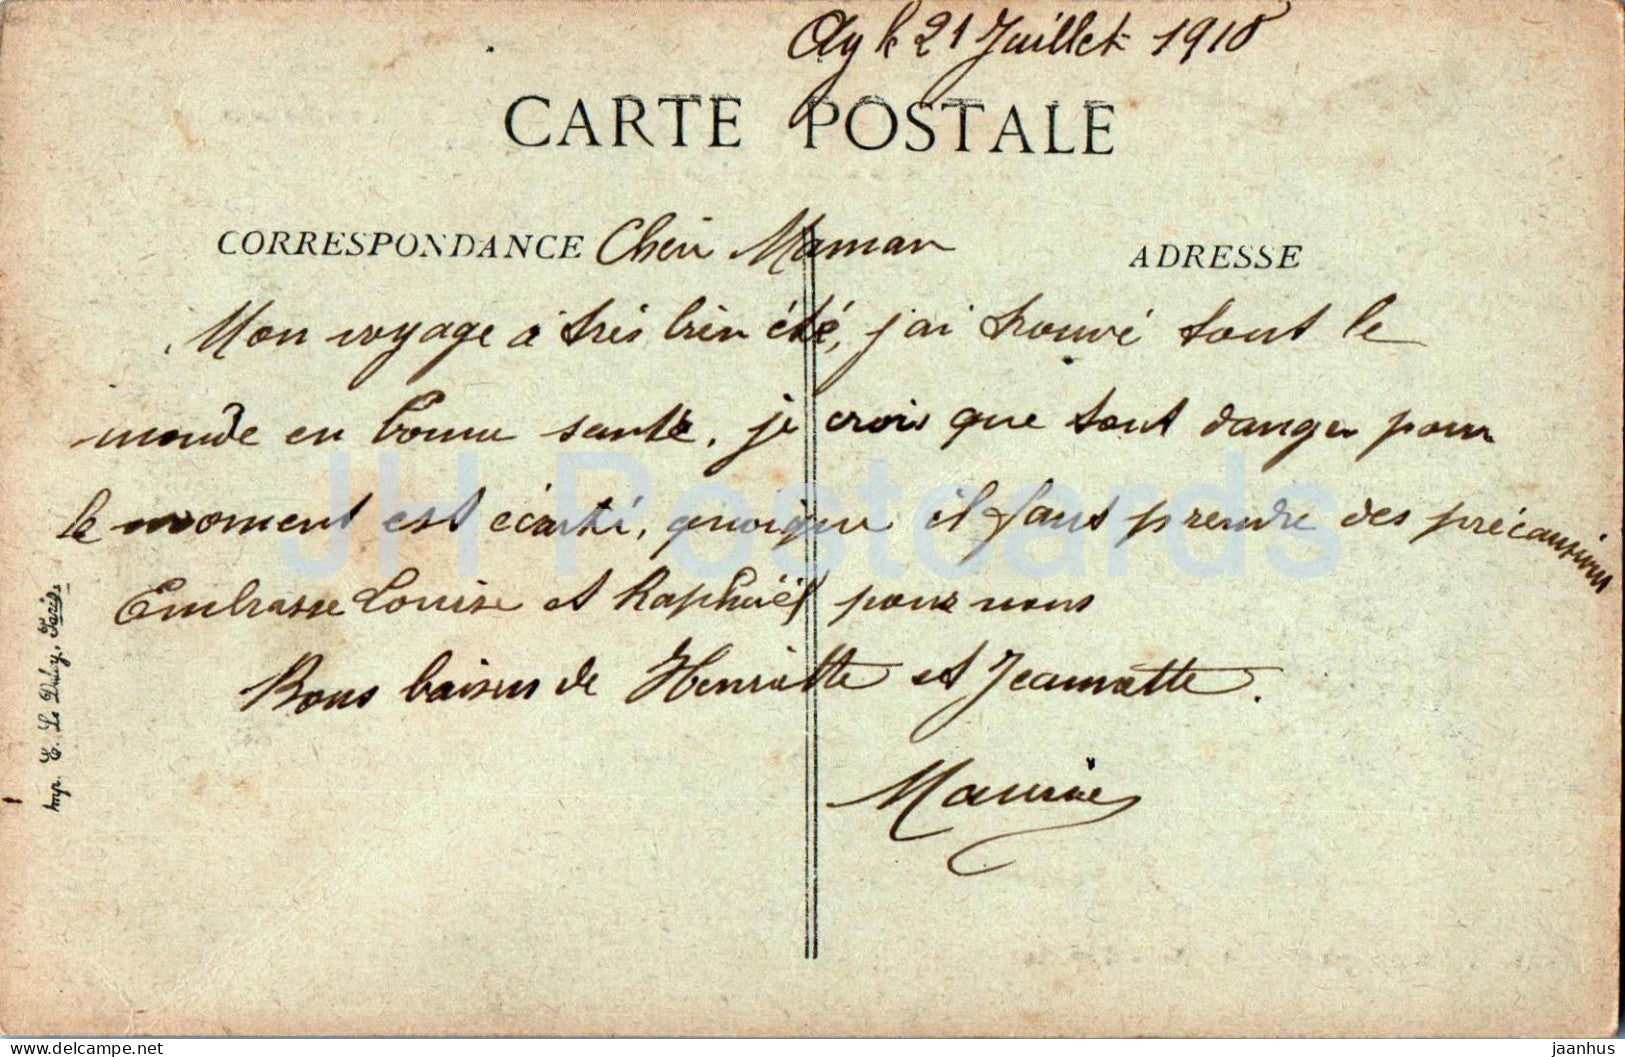 Ay le 21 Juillet 1918
CARTE POSTALE
CORRESPONDANCE Chéri Maman
ADRESSE
Mon voyage à très bien été, j'ai trouvé tout le
monde en bonne santé, je crois que tout danger pour
le moment est écarté, quoique il faut prendre des précautions
Embrasse Louise et Raphaël pour nous
Bons baisers de Henriette et Jeannette.
Maurice
Imp. E. Le Deley, Paris
JH Postcards
delcampe.net
jaanhus